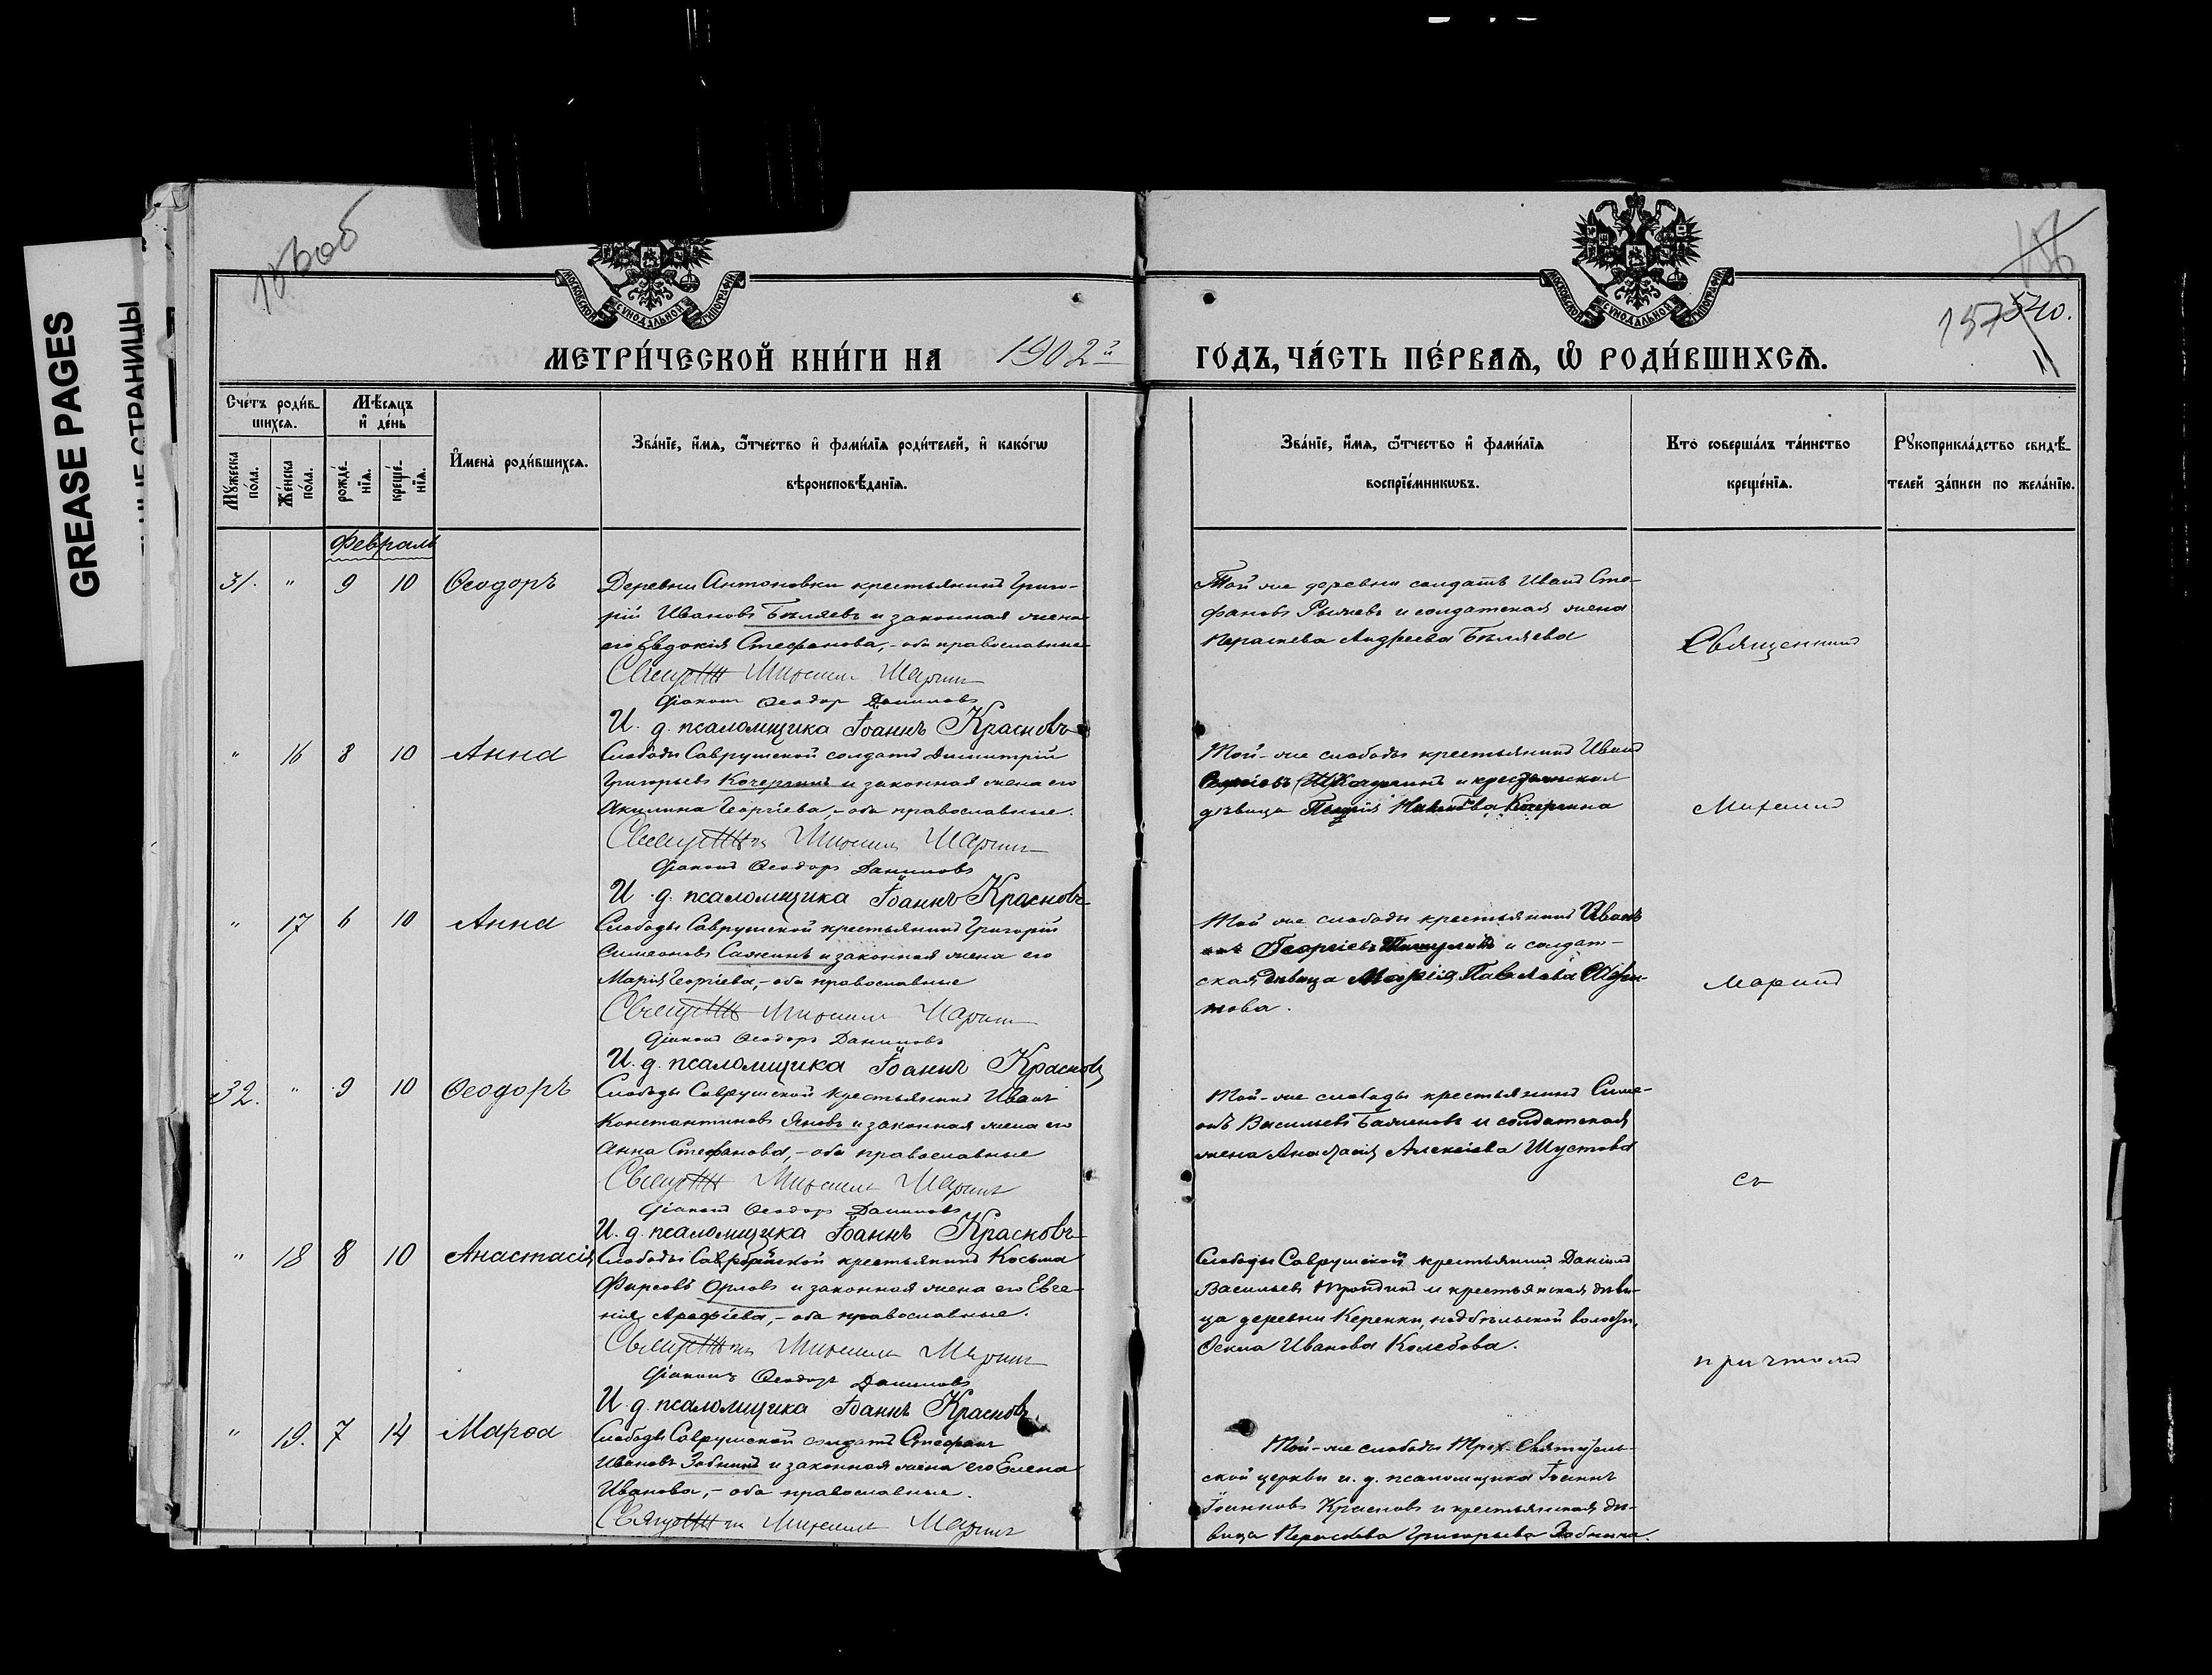 GREASE PAGES
СТРАНИЦЫ
МОСКОВСКОЙ СУНОДАЛЬНОЙ ТИПОГРАФІИ
МОСКОВСКОЙ СУНОДАЛЬНОЙ ТИПОГРАФІИ
157
540.
МЕТРИ́ЧЕСКОЙ КНИ́ГИ НА 1902й ГОДЪ, ЧА́СТЬ ПЕ́РВАѦ, Ѡ РОДИ́ВШИХСѦ.
Сче́тъ роди́в-
шихсѧ.
Мѣсѧцъ
и де́нь
Мꙋ́жеска
по́ла.
Же́нска
по́ла.
рожде́-
нїѧ.
креще́-
нїѧ.
Имена̀ роди́вшихсѧ.
Зва́нїе, и́мѧ, ѻ҆́тчество и фами́лїѧ роди́телей, и како́гѡ
вѣроисповѣ́данїѧ.
Зва́нїе, и́мѧ, ѻ҆́тчество и фами́лїѧ
воспрїе́мникѡвъ.
Кто̀ соверша́лъ та́инство
креще́нїѧ.
Рꙋкоприкла́дство свидѣ́-
телей за́писи по жела́нїю.
Февраль
31. " 9 10 Ѳеодоръ
Деревни Антоновки крестьянинъ Григо-
рій Ивановъ Бѣляевъ и законная жена
его Евдокія Стефанова, - оба православные
Михаилъ Маринъ
Діаконъ Ѳеодоръ Даниловъ
И. д. псаломщика Іоаннъ Красновъ
Той же деревни солдатъ Иванъ Сте-
фановъ Рыжевъ и солдатская жена
Параскева Андреева Бѣляева
Священникъ
" 16 8 10 Анна
Слободы Саврушской солдатъ Димитрій
Григорьевъ Кочергинъ и законная жена его
Акилина Георгіева, - оба православные.
Михаилъ Маринъ
Діаконъ Ѳеодоръ Даниловъ
И. д. псаломщика Іоаннъ Красновъ
Той-же слободы крестьянинъ Иванъ
и крестьянская
дѣвица
Михаилъ
" 17 6 10 Анна
Слободы Саврушской крестьянинъ Григорій
Симеоновъ Сажинъ и законная жена его
Марія Георгіева, - оба православные
Михаилъ Маринъ
Діаконъ Ѳеодоръ Даниловъ
И. д. псаломщика Іоаннъ Красновъ
Той же слободы крестьянинъ Иванъ
Георгіевъ и солдат-
ская дѣвица Марія Павлова
Маринъ
32. " 9 10 Ѳеодоръ
Слободы Саврушской крестьянинъ Иванъ
Константиновъ Яновъ и законная жена его
Анна Стефанова, - оба православные
Михаилъ Маринъ
Діаконъ Ѳеодоръ Даниловъ
И. д. псаломщика Іоаннъ Красновъ
Той-же слободы крестьянинъ Симе-
онъ Васильевъ Баженовъ и солдатская
жена Анастасія Алексіева Шустова
съ
" 18 8 10 Анастасія
Слободы Саврушской крестьянинъ Косьма
Фирсовъ Орловъ и законная жена его Евге-
нія Арефіева, - оба православные.
Михаилъ Маринъ
Діаконъ Ѳеодоръ Даниловъ
И. д. псаломщика Іоаннъ Красновъ
Слободы Саврушской крестьянинъ Даніилъ
Васильевъ и крестьянская дѣви-
ца деревни Керенки, волости,
Ѳекла Иванова
причтомъ
" 19. 7 14 Марѳа
Слободы Саврушской солдатъ Стефанъ
Ивановъ Зобнинъ и законная жена его Елена
Иванова, - оба православные.
Михаилъ Маринъ
Той-же слободы Трех-Святитель-
ской церкви и. д. псаломщика Іоаннъ
Іоанновъ Красновъ и крестьянская дѣ-
вица Параскева Григорьева Зобнина.